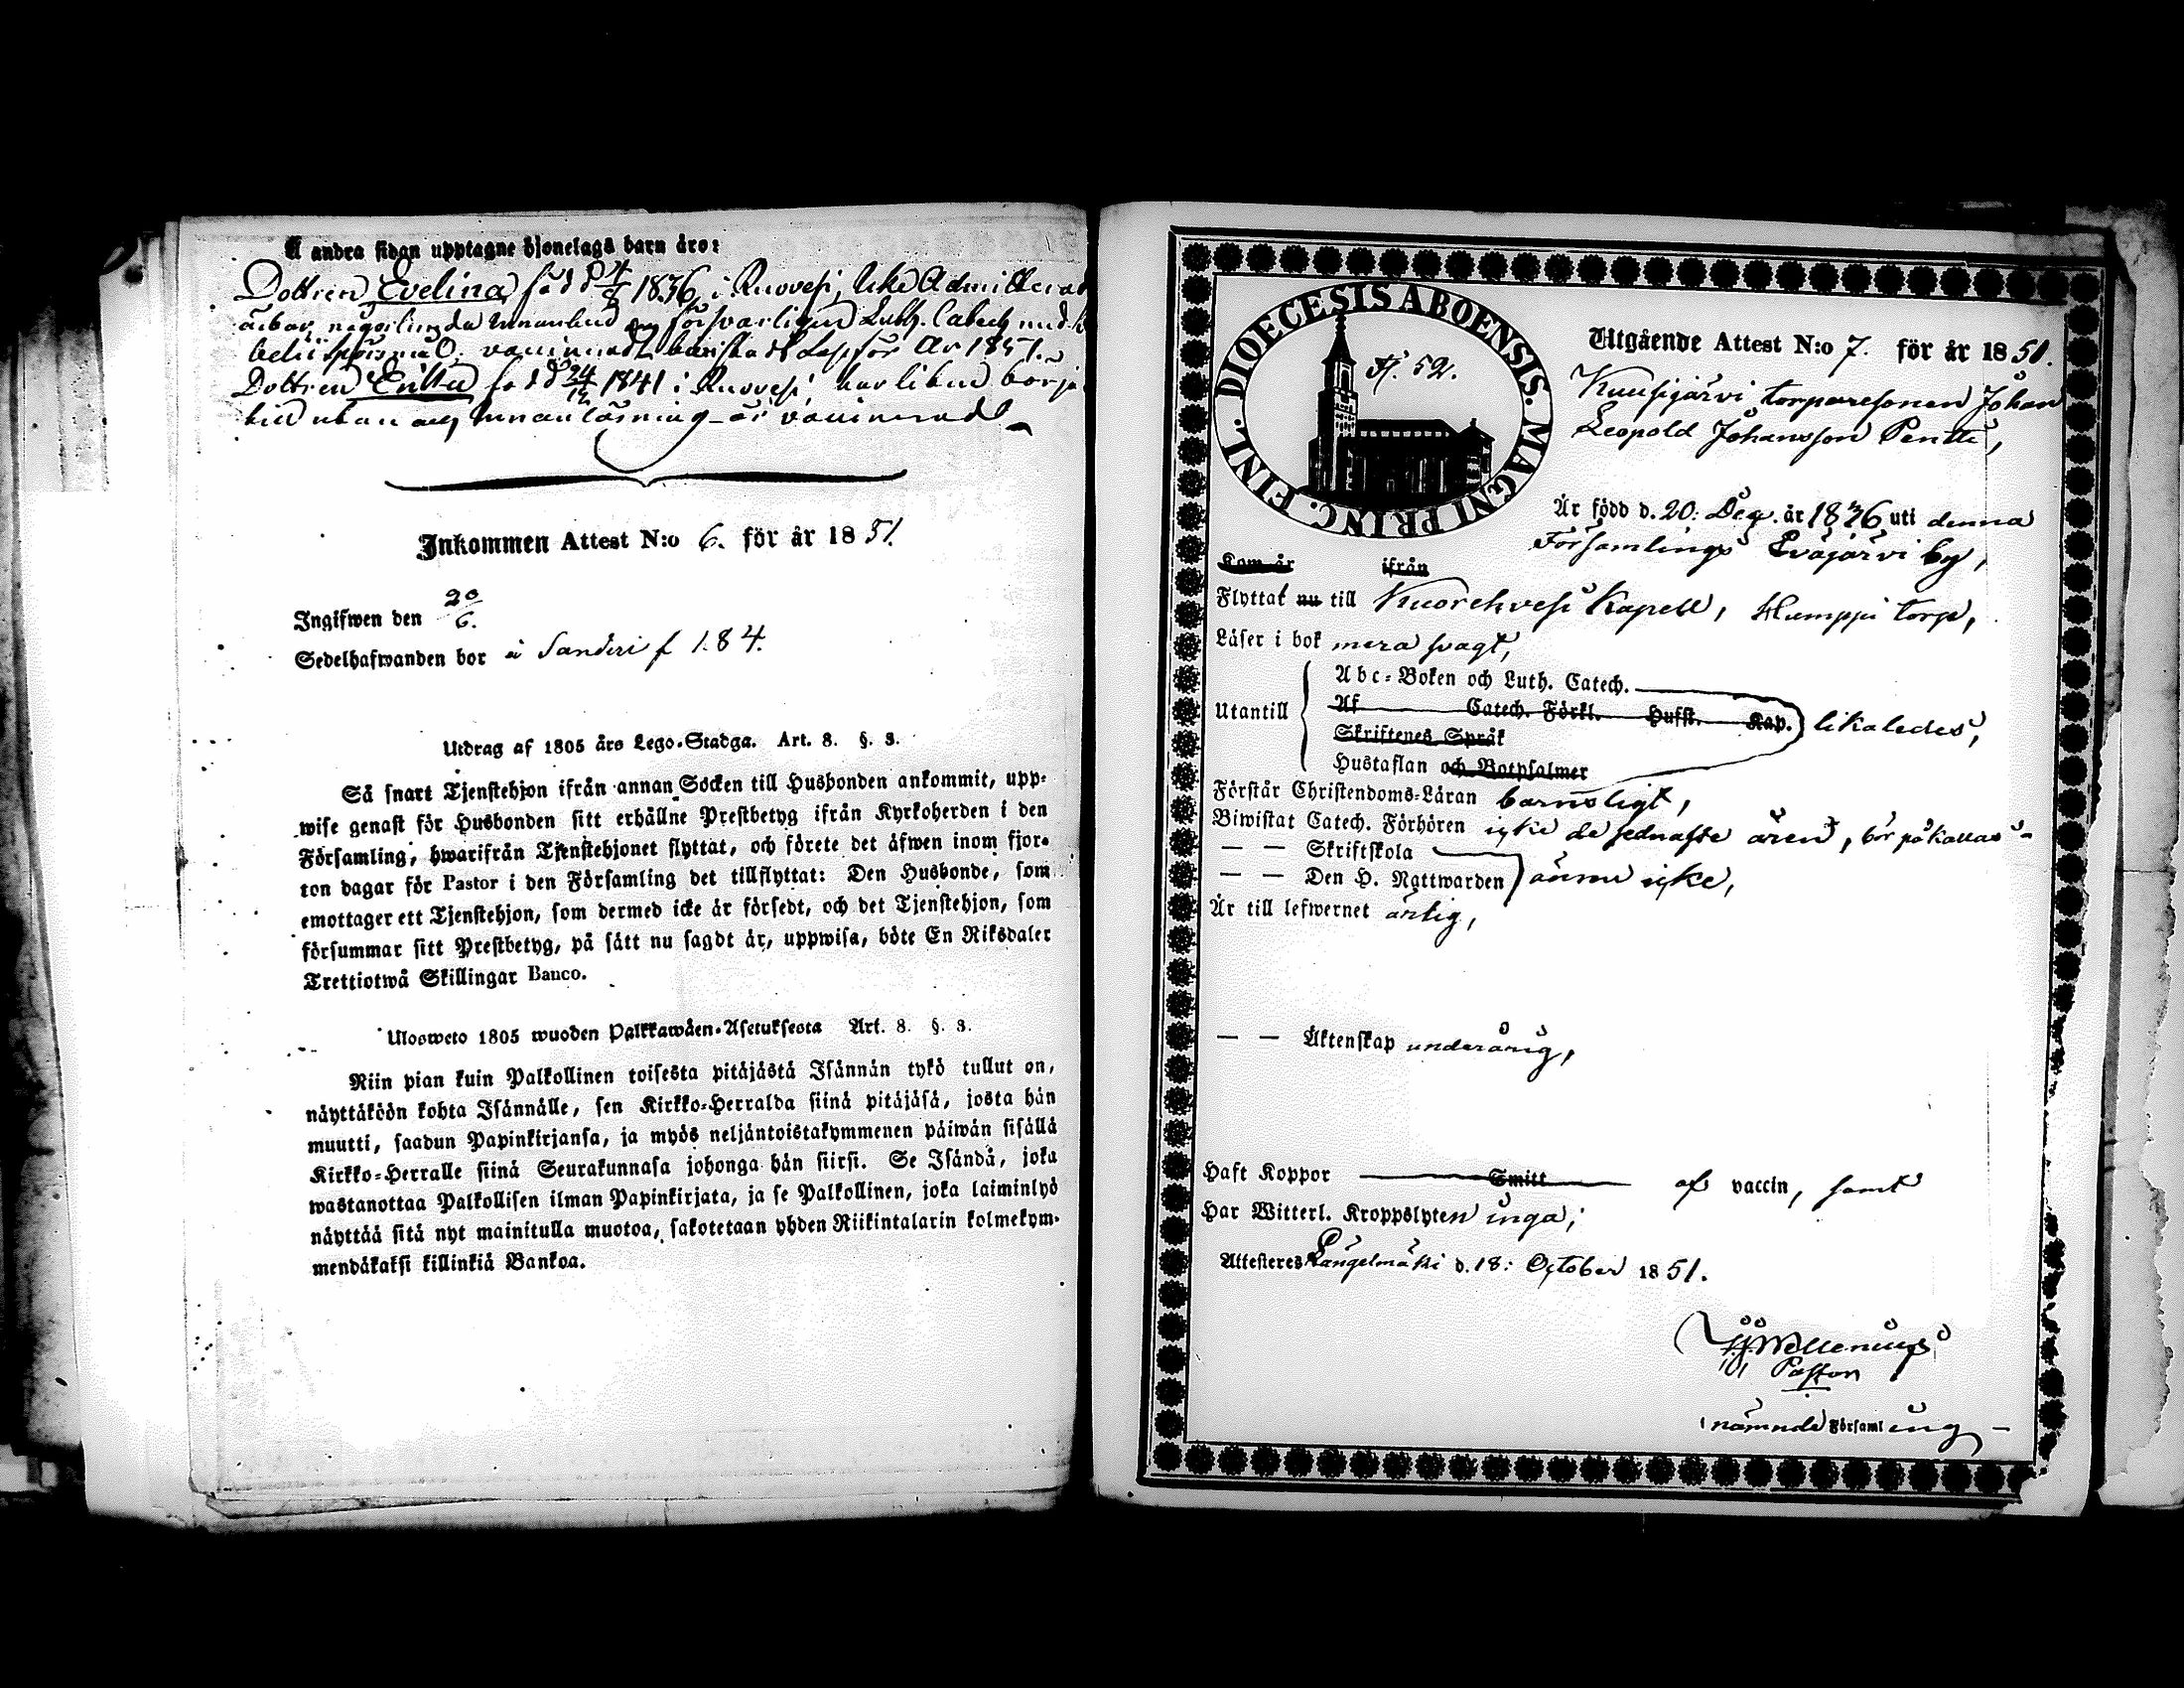 Å andra sidan upptagne hjonelags barn äro:
Dottren Evelina född d 4/8 1836 i Ruovesi, Icke Admitterad
försvarligen Luth. Catech med
vaccinerad för År 1851.
Dottren född d 24/12 1841 i Ruovesi, har börja
utan och innanläsning - är vaccinerad
Inkommen Attest N:o 6. för år 1851.
Ingifwen den 20/6.
Sedelhafwanden bor å Sanderi f 184.
Utdrag af 1805 års Lego-Stadga. Art. 8. §. 3.
Så snart Tjenstehjon ifrån annan Socken till Husbonden ankommit, upp-
wise genast för Husbonden sitt erhållne Prestbetyg ifrån Kyrkoherden i den
Församling, hwarifrån Tjenstehjonet flyttat, och förete det äfwen inom fjor-
ton dagar för Pastor i den Församling det tillflyttat: Den Husbonde, som
emottager ett Tjenstehjon, som dermed icke är försedt, och det Tjenstehjon, som
försummar sitt Prestbetyg, på sätt nu sagdt är, uppwisa, böte En Riksdaler
Trettiotwå Skillingar Banco.
Ulosweto 1805 wuoden Palkkawäen-Asetuksesta Art. 8. §. 3.
Niin pian kuin Palkollinen toisesta pitäjästä Isännän tykö tullut on,
näyttäköön kohta Isännälle, sen Kirkko-Herralda siinä pitäjäsä, josta hän
muutti, saadun Papinkirjansa, ja myös neljäntoistakymmenen päiwän sisällä
Kirkko-Herralle siinä Seurakunnasa johonga hän siirsi. Se Isändä, joka
wastanottaa Palkollisen ilman Papinkirjata, ja se Palkollinen, joka laiminlyö
näyttää sitä nyt mainitulla muotoa, sakotetaan yhden Riikintalarin kolmekym-
mendäkaksi killinkiä Bankoa.
DIOECESIS ABOENSIS. MAGNI PRINC. FINL.
52.
Utgående Attest N:o 7. för år 1851.
Kuusijärvi torparesonen Johan
Leopold Johansson Pentti,
Är född d. 20: Dec. år 1836 uti denna
Församlings Eväjärvi by,
Kom år ifrån
Flyttat nu till Kuorehvesi Kapell, Humppi torp,
Läser i bok mera svagt,
Abc-Boken och Luth. Catech.
Utantill Af Catech. Förkl. Hufst. Kap. likaledes,
Skriftenes Språk
Hustaflan och Botpsalmer
Förstår Christendoms-Läran barnsligt,
Biwistat Catech. Förhören icke de sednaste åren, bör påkallas -
— — Skriftskola
— — Den H. Nattwarden ännu icke,
Är till lefwernet ärlig,
— — Äktenskap underårig,
Haft Koppor Smitt af vaccin, samt
Har Witterl. Kroppslyten inga;
Attesteres Längelmäki d. 18: October 1851.
Wallenius
Pastor
i nämnde Församling -